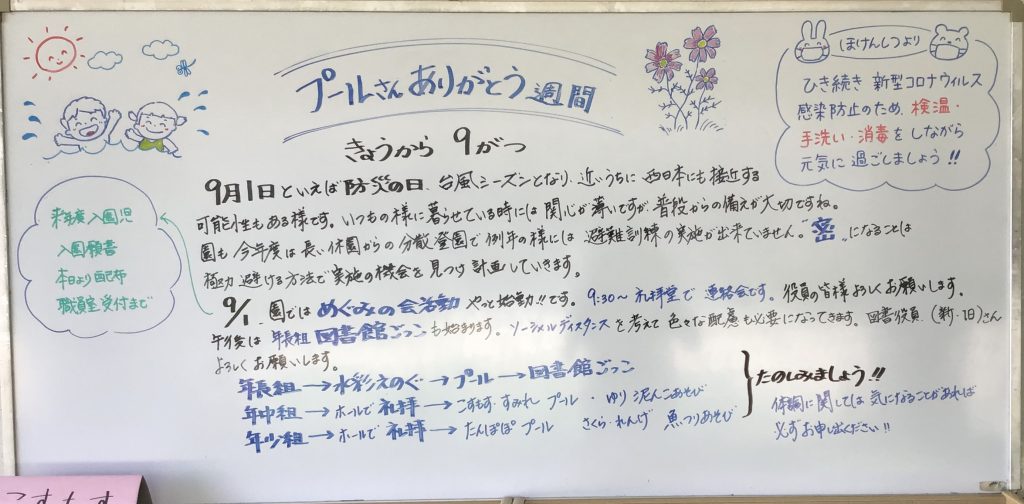 プールさんありがとう週間
きょうから 9がつ
ほけんしつより
ひき続き 新型コロナウィルス
感染防止のため、検温・
手洗い・消毒をしながら
元気に過ごしましょう!!
9月1日といえば防災の日、台風シーズンとなり、近いうちに西日本にも接近する
可能性もある様です。いつもの様に暮らせている時には関心が薄いですが普段からの備えが大切ですね。
園も今年度は長い休園からの分散登園で例年の様には避難訓練の実施が出来ていません。"密"になることは
極力避ける方法で実施の機会を見つけ計画していきます。
来年度入園児
入園願書
本日より配布
職員室受付まで
9/1、園ではめぐみの会活動やっと始動!!です。9:30〜礼拝堂で連絡会です。役員の皆様よろしくお願いします。
午後は年長組図書館ごっこも始まります。ソーシャルディスタンスを考えて色々な配慮も必要になってきます。図書役員(新・旧)さん
よろしくお願いします。
年長組→水彩えのぐ→プール→図書館ごっこ
年中組→ホールで礼拝→こすもす・すみれ プール・ゆり 泥んこあそび
年少組→ホールで礼拝→たんぽぽ プール さくら・れんげ 魚つりあそび
たのしみましょう!!
体調に関しては気になることがあれば
必ずお申し出ください!!
こすもす